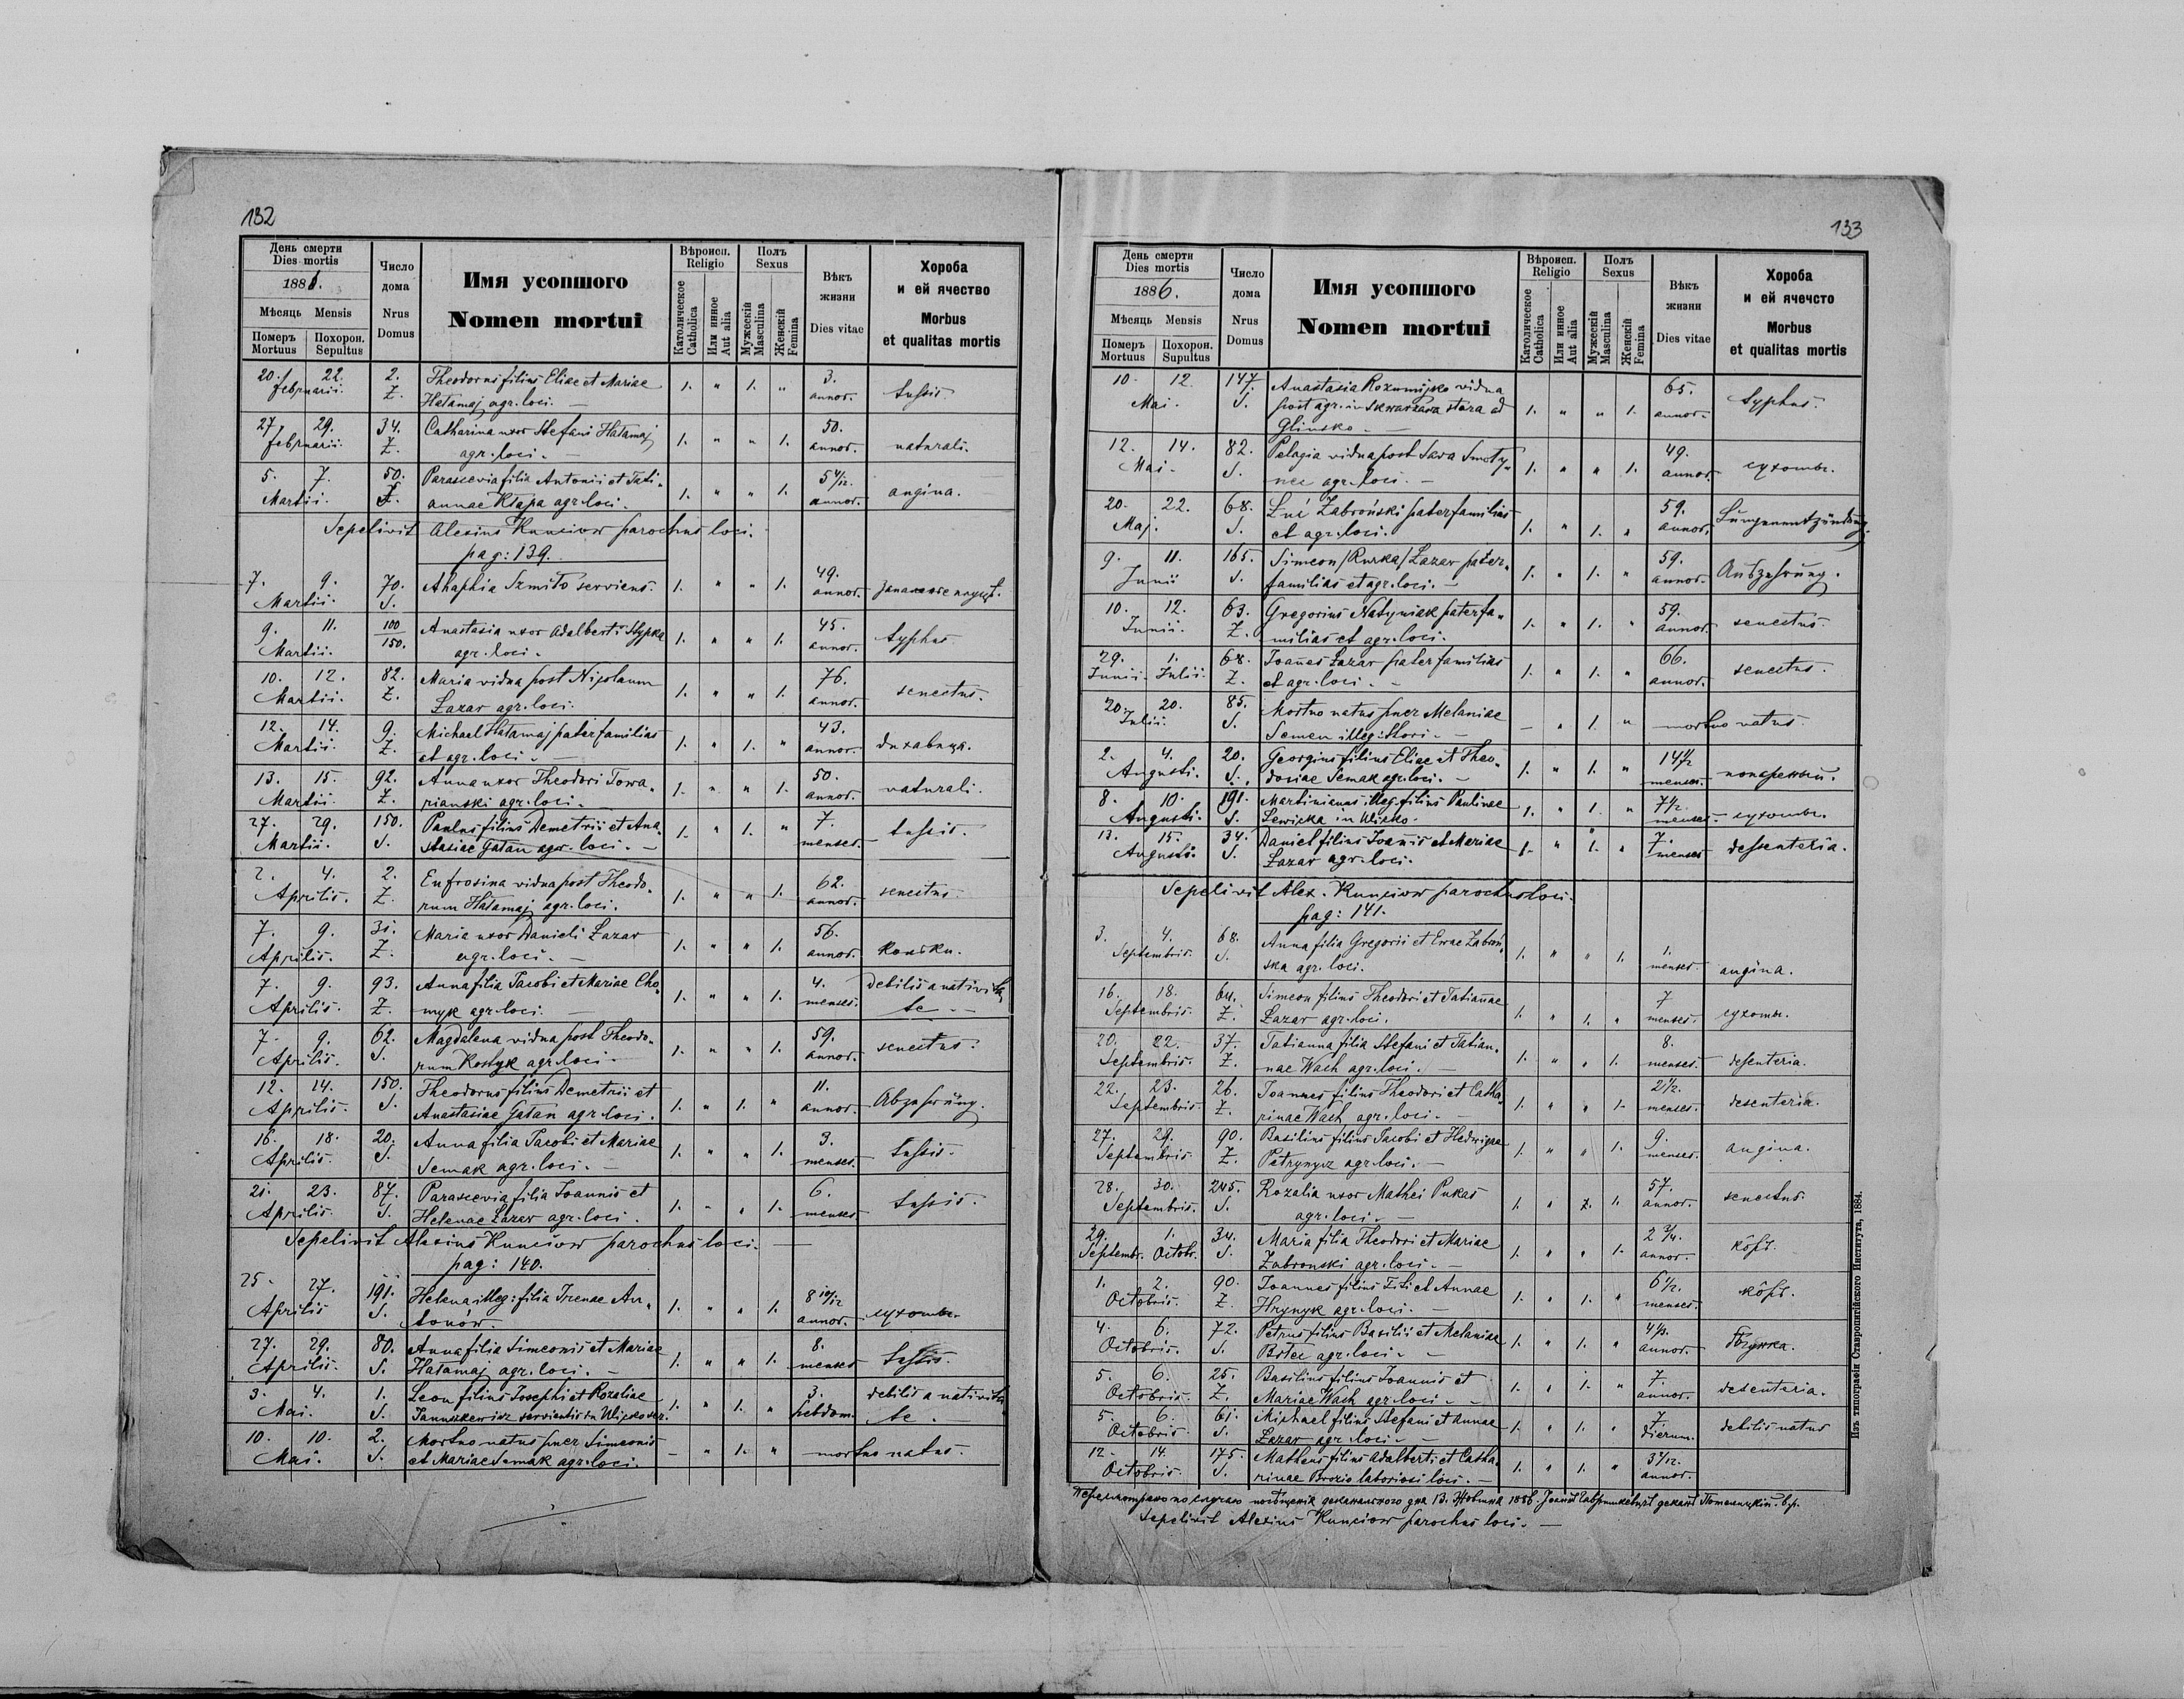 132
День смерти
Dies mortis
1886.
Мѣсяць Mensis
Померъ Mortuus
Похорон. Sepultus
Число дома
Nrus Domus
Имя усопшого
Nomen mortui
Вѣроисп. Religio
Католическое Catholica
Или инное Aut alia
Полъ Sexus
Мужескій Masculina
Женскій Femina
Вѣкъ жизни
Dies vitae
Хороба и ей ячество
Morbus et qualitas mortis
20. 22. 2. Theodorus filius Eliae et Mariae 1. " 1. " 3.
Februarii. Z. Hatamaj agr. loci. — annor. tussis.
27. 29. 34. Catharina uxor Stefani Hatamaj 1. " " 1. 50.
Februarii. Z. agr. loci. — annor. naturali.
5. 7. 50. Parascevia filia Antonii et Tati- 1. " " 1. 5 4/12.
Martii. Z. annae Klapa agr. loci. annor. angina.
Sepelivit Alexius Kunciow parochus loci.
pag: 139.
7. 9. 70. Ahaphia Szmilo serviens. 1. " " 1. 49.
Martii. S. annor.
9. 11. 100/150. Anastasia uxor Adalberti Hypka 1. " " 1. 45.
Martii. agr. loci. annor. typhus
10. 12. 82. Maria vidua post Nicolaum 1. " " 1. 76.
Martii. Z. Łazar agr. loci. annor. senectus.
12. 14. 9. Michael Hatamaj pater familias 1. " 1. " 43.
Martii. Z. et agr. loci. — annor. дихавиця.
13. 15. 92. Anna uxor Theodori Towa- 1. " " 1. 50.
Martii. Z. rianski agr. loci. — annor. naturali.
27. 29. 150. Paulus filius Demetrii et Ana- 1. " 1. " 7.
Martii. S. stasiae Gatan agr. loci. — menses. tussis.
2. 4. 2. Eufrosina vidua post Theodo- 1. " " 1. 62.
Aprilis. Z. rum Hatamaj agr. loci. annor. senectus.
7. 9. 31. Maria uxor Danieli Łazar 1. " " 1. 56.
Aprilis. Z. agr. loci. — annor. кольки.
7. 9. 93. Anna filia Jacobi et Mariae Cho- 1. " " 1. 4. debilis a nativita
Aprilis. Z. myk agr. loci. — menses. te. —
7. 9. 62. Magdalena vidua post Theodo- 1. " " 1. 59.
Aprilis. S. rum Kostyk agr. loci. annor. senectus.
12. 14. 150. Theodorus filius Demetrii et 1. " 1. " 11.
Aprilis. S. Anastasiae Gatan agr. loci. annor. Abzehrung.
16. 18. 20. Anna filia Jacobi et Mariae 1. " " 1. 3.
Aprilis. S. Semak agr. loci. — menses. tussis.
21. 23. 87. Parascevia filia Joannis et 1. " " 1. 6.
Aprilis. S. Helenae Łazar agr. loci. menses. tussis.
Sepelivit Alexius Kunciow parochus loci. —
pag: 140.
25. 27. 191. Helena illeg: filia Irenae An- 1. " " 1. 8 10/12
Aprilis S. tonów. annor. сухоты.
27. 29. 80. Anna filia Simeonis et Mariae 1. " " 1. 8.
Aprilis. S. Hatamaj agr. loci. — menses tussis.
3. 4. 1. Leon filius Josephi et Rozaliae 1. " 1. " 3. debilis a nativita
Mai. S. Januszkewicz servientis in hebdom. te.
10. 10. 2. Mortuo natus puer Simeonis — " 1. " mortuo natus.
Mai. S. et Mariae Semak agr. loci.
133
День смерти
Dies mortis
1886.
Мѣсяць Mensis
Померъ Mortuus
Похорон. Supultus
Число дома
Nrus Domus
Имя усопшого
Nomen mortui
Вѣроисп. Religio
Католическое Catholica
Или инное Aut alia
Полъ Sexus
Мужескій Masculina
Женскій Femina
Вѣкъ жизни
Dies vitae
Хороба и ей ячечсто
Morbus et qualitas mortis
10. 12. 147. Anastasia Rozumijko vidua 65.
Mai. S. post agr. in Skwarzawa stara ad 1. " " 1. annor. typhus.
Glinsko. —
12. 14. 82. Pelagia vidua post Sawa 1. " " 1. 49.
Mai. S. agr. loci. — annor. сухоты.
20. 22. 68. Luc Zabroński pater familias 1. " 1. " 59.
Maj. S. et agr. loci. annor. Lungenentzündung.
9. 11. 165. Simeon /Rurka/ Łazar pater- 1. " 1. " 59.
Junii S. familias et agr. loci. — annor. Auszehrung.
10. 12. 63. Gregorius Natyniak pater fa- 1. " 1. " 59.
Junii. Z. milias et agr. loci. annor. senectus.
29. 1. 68. Joañes Łazar pater familias 1. " 1. " 66.
Junii. Julii. Z. et agr. loci. — annor. senectus.
20. 20. 85. Mortuo natus puer Melaniae — " 1. " mortuo natus.
Julii. S. Semen illeg: thori. —
2. 4. 20. Georgius filius Eliae et Theo- 1. " 1. " 14 1/2
Augusti. S. dosiae Semak agr. loci. — menses.
8. 10. 191. Martinianus illeg. filius Paulinae 1. " 1. " 7 1/2.
Augusti. S. Lewicka in menses. сухоты.
13. 15. 34. Daniel filius Joannis et Mariae 1. " 1. " 7.
Augusti. S. Łazar agr. loci. menses dessenteria.
Sepelivit Alex. Kunciow parochus loci.
pag: 141.
3. 4. 68. Anna filia Gregorii et Evae Zabroń- 1. " " 1. 1.
Septembris. S. ska agr. loci. menses. angina.
16. 18. 64. Simeon filius Theodori et Tatiannae 1. " 1. " 7
Septembris. Z. Łazar agr. loci. menses. сухоты.
20. 22. 37. Tatianna filia Stefani et Tatian- 1. " " 1. 8.
Septembris. Z. nae Wach agr. loci. — menses. desenteria.
22. 23. 26. Joannes filius Theodori et Catha- 1. " " 1. 2 1/2.
Septembris. Z. rinae Wach agr. loci. — menses. desenteria.
27. 29. 90. Basilius filius Jacobi et Hedwigae 1. " " 1. 9.
Septembris. Z. Petrynycz agr. loci. — menses. angina.
28. 30. 245. Rozalia uxor Mathei Pukas 1. " 1. 57.
Septembris. S. agr. loci. — annor. senectus
29. 1. 34. Maria filia Theodori et Mariae 1. " " 1. 2 3/4.
Septembr. Octobr. S. Zabronski agr. loci. — annor.
1. 2. 90. Joannes filius et Annae 1. " 1. " 6 1/2.
Octobris. Z. Hrynyk agr. loci. — menses.
4. 6. 72. Petrus filius Basilii et Melaniae 1. " 1. " 4 1/3.
Octobris. S. agr. loci. — annor.
5. 6. 25. Basilius filius Joannis et 1. " 1. " 7.
Octobris. Z. Mariae Wach agr. loci. — annor. desenteria.
5. 6. 61. Michael filius Stefani et Annae 1. " 1. " 7.
Octobris S. Łazar agr. loci. — dierum. debilis natus
12. 14. 175. Matheus filius Adalberti et Catha- 1. " 1. " 3 1/12.
Octobris. S. rinae Brozio laboriosi loci. — annor.
Пересмотрено по случаю посѣщенія деканального дня 13. Жовтня 1886.
Sepelivit Alexius Kunciow parochus loci. —
Изъ типографіи Ставропигійского Института, 1884.